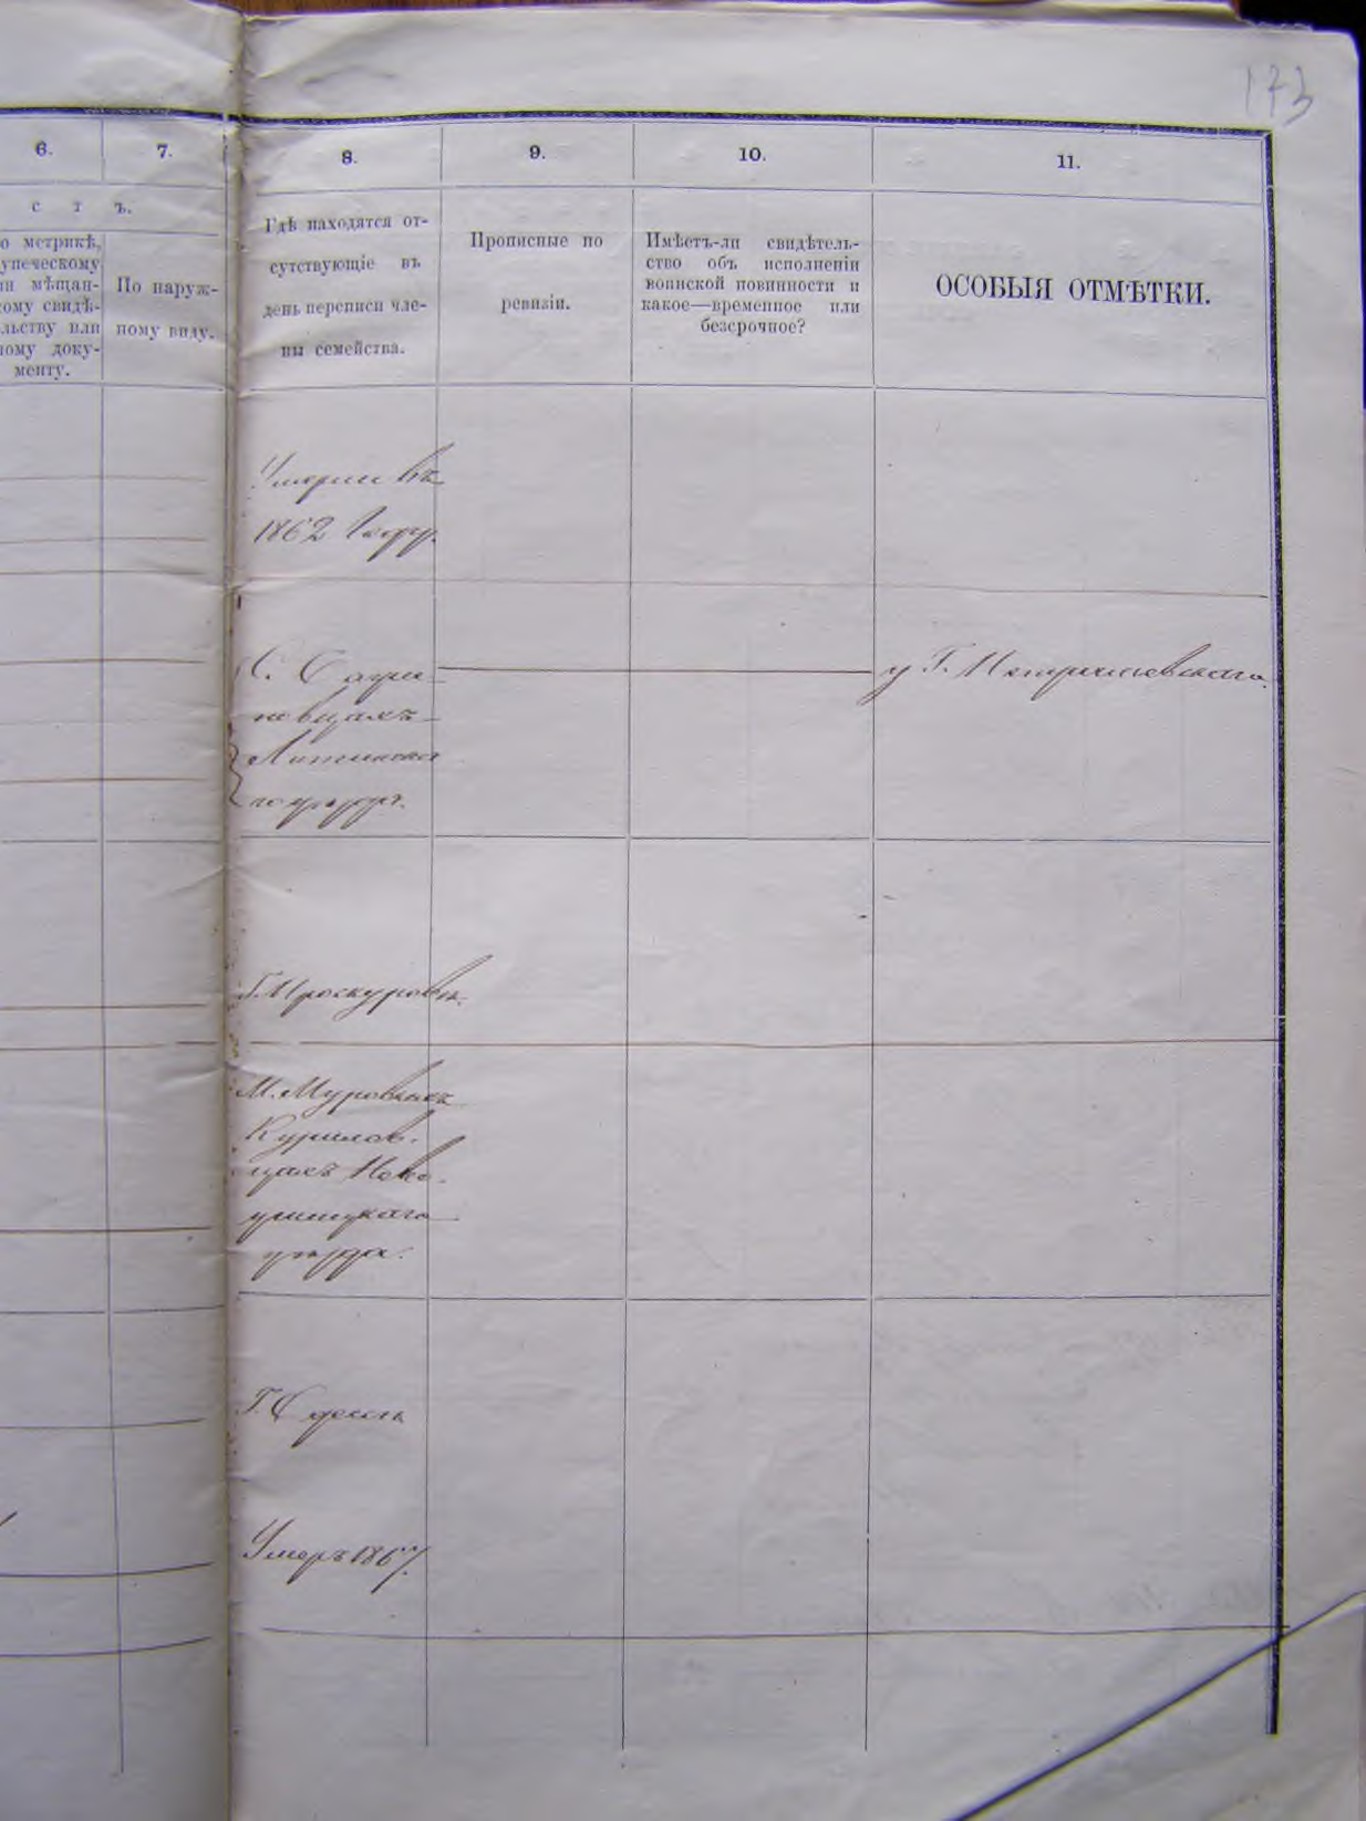 173
6.
7.
8.
9.
10.
11.
с т ъ.
о метрикѣ,
упеческому
ли мѣщан-
кому свидѣ-
льству или
ному доку-
менту.
По наруж-
ному виду.
Гдѣ находятся от-
сутствующіе въ
день переписи чле-
ны семейства.
Прописные по
ревизіи.
Имѣетъ-ли свидѣтель-
ство объ исполненіи
воинской повинности и
какое—временное или
безсрочное?
ОСОБЫЯ ОТМѢТКИ.
въ
1862 году.
С.
новцахъ
Литинска
го уѣзда.
у Г.
Г. Проскуровъ.
М. Муровныхъ
Курилов-
цахъ Ново-
ушицкаго
уѣзда.
Г. Одесса
Умеръ 1867